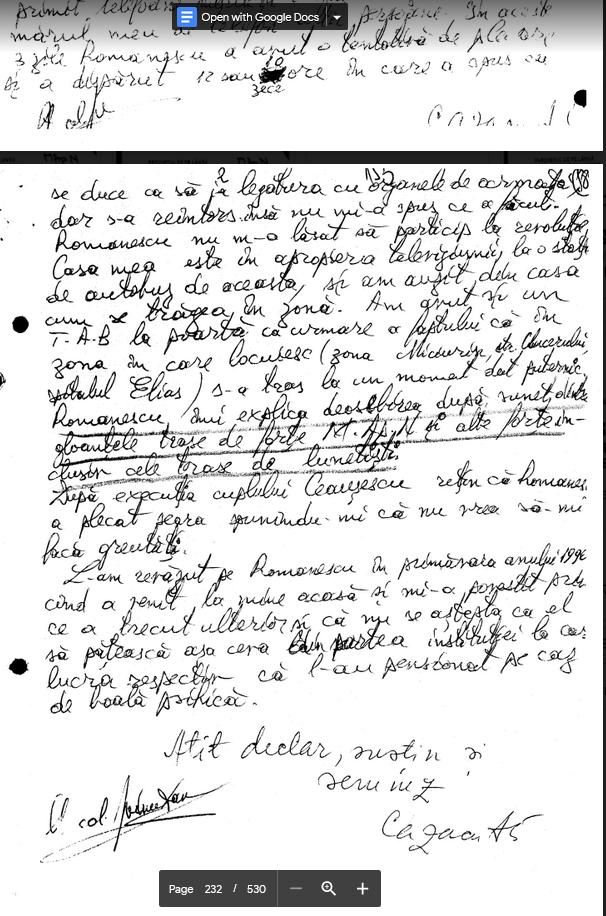 primit telefoane
Open with Google Docs
mărul meu de telefon persoane. In aceste
3 zile Romanescu a avut o tentativă de plecare
și a dispărut 12 sau 10 ore în care a spus că
zece
2
se duce ca să ia legătura cu organele de
dar s-a reîntors însă nu mi-a spus ce a făcut.
Romanescu nu m-a lăsat să particip la revoluție
Casa mea este în apropierea televiziunii, la o stație
de autobus de aceasta, și am auzit din casa
cum se trăgea în zonă. Am avut și un
T.A.B la poartă ca urmare a faptului că în
zona în care locuiesc (zona Miciurin, str. Clucerului
spitalul Elias) s-a tras la un moment dat puternic.
Romanescu îmi explica deosebirea după sunet, dintre
gloanțele trase de forțe M.Ap.N și alte forțe in-
clusiv cele trase de lunetiști.
După execuția cuplului Ceaușescu rețin că Romanes
a plecat seara spunîndu-mi că nu vrea să-mi
facă greutăți.
L-am revăzut pe Romanescu în primăvara anului 1990
cînd a venit la mine acasă și mi-a povestit prin
ce a trecut ulterior, și că nu se aștepta ca el
să pățească așa ceva din partea instituției la car
lucra respectiv că l-au pensionat pe caz
de boală psihică.
Atît declar, susțin și
semnez
Lt col.
Page 232 / 530